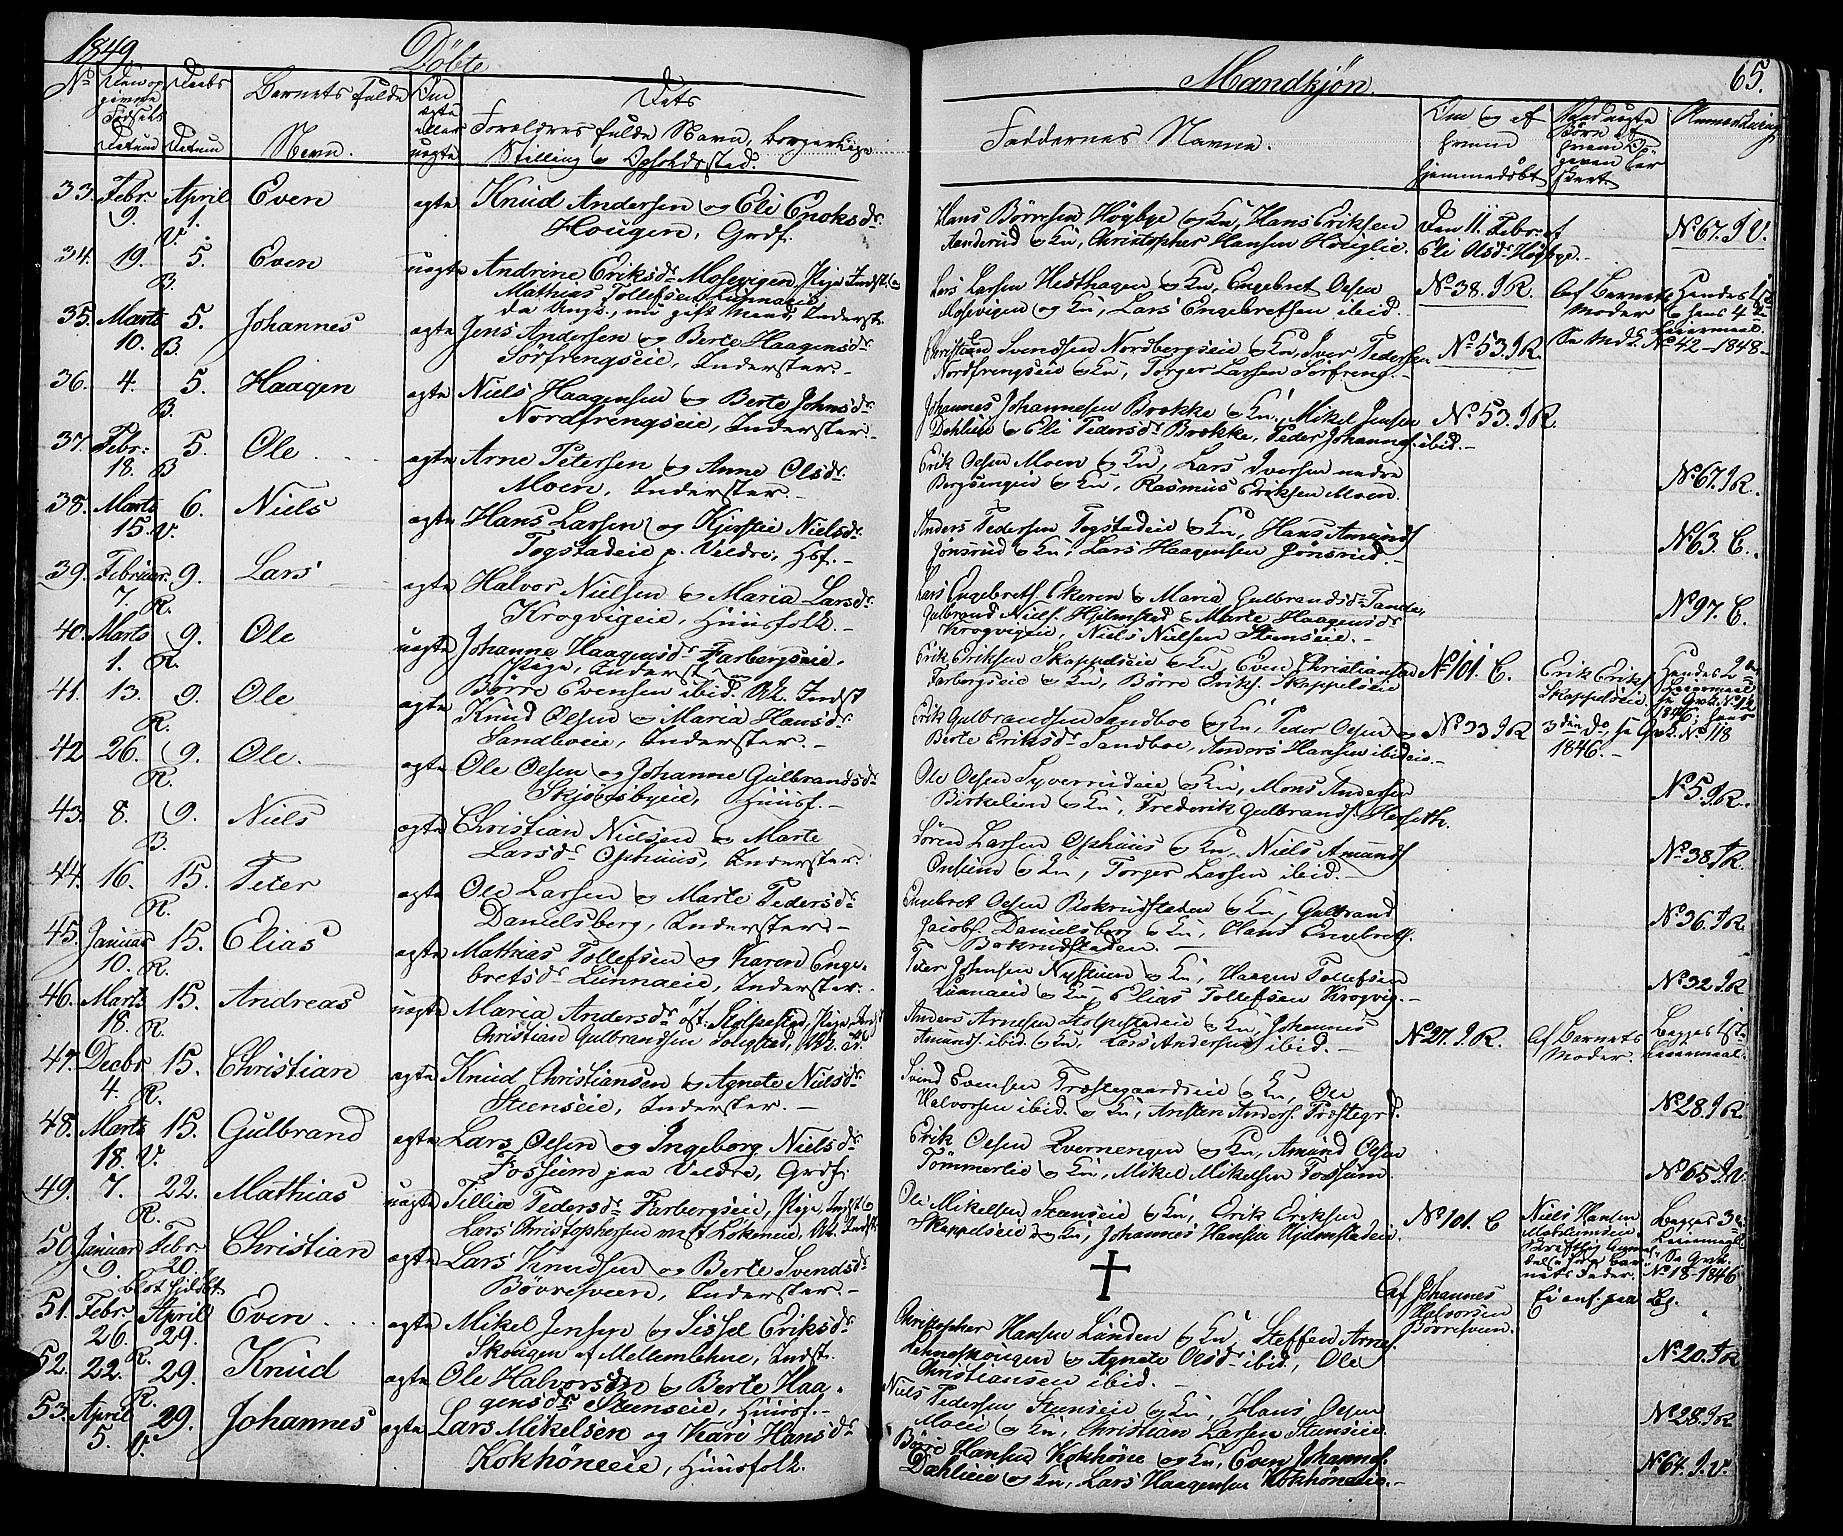 1849.
Döbte
Mandkjön.
65.
No Den op givne Födsels Datum
Daabs Datum
Barnets fulde Navn.
Om ægte eller uægte
Dets Forældres fulde Navn, borgerlige Stilling & Opholdssted.
Faddernes Navne.
Om & af hvem hjemmedöbt
Anmærkning
33. Febr 9. April 1. V. Even ægte Knud Andersen og Eli Enoksdr
Hougen, Grdf.
Hans Börresen Högbye & Kn, Hans Eriksen
Aanderud & Kn, Christopher Hansen
Den 11 Febr. af
Eli Olsdr Högbye.
No 67. J V.
34. 19. 5. B. Even uægte Andrine Eriksdr Mosevigen, Pige Indst. &
Mathias Tollefsen Lunnaeie,
da Ungk., nu gift Mand, Inderst.
Lars Larsen Hesthagen & Kn, Engebret Oesen
Mosevigen & Kn, Lars Engebretsen ibid.
No 38. J R.
Af Barnets
Moder
35. Marts 10. 5. B. Johannes ægte Jens Andersen & Berte Haagensdr
Sörfrengseie, Inderster.
Christian Svendsen Nordbergseie & Kn, Iver Pedersen
Nordfrengseie & Kn, Torger Larsen Sorfreng.
No 53. J R.
No 42-1848.
36. 4. 5. B. Haagen ægte Niels Haagensen & Berte Johnsdr
Nordfrengseie, Inderster.
Johannes Johannesen Brokke & Kn, Mikel Jensen
Dehlien & Eli Pedersdr Brokke, Peder Johannes. ibid.
No 53. J R.
37. Febr. 18. 5. B Ole ægte Arne Petersen & Anne Olsdr
Moen, Inderster.
Erik Oesen Moen & Kn, Lars Iversen nedre
Bergsengen & Kn, Rasmus Eriksen Moen.
No 67. J R.
38. Marts 15. 6. V. Niels ægte Hans Larsen og Kjersti Nielsdr
Togstadeie p. Veldre, Hsf.
Anders Pedersen Togstadeie & Kn, Hans Amunds
Jönsrud & Kn, Lars Haagensen Jönsrud.
No 63. C.
39. Februar 7. 9. R. Lars ægte Halvor Nielsen & Maria Larsdr
Krogvigeie, Huusfolk.
Lars Engebrets. Ekeren & Maria Gulbrandsdr Tande,
Gulbrand Niels. Hjelmstad & Marte Haagensdr
Krogvigeie, Niels Nielsen Stenseie.
No 97. C.
40. Marts 1. 9. R. Ole uægte Johanne Haagensdr Farbergseie,
Pige, Inderst &
Börre Evensen ibid. Uk. Indst
Erik Eriksen Skappelseie & Kn, Even Christiansen
Farbergseie & Kn, Börre Eriks. Skappelseie
No 101. C.
Erik Eriks
Skappelseie.
41. 13. 9. R. Ole ægte Knud Oesen & Maria Hansdr
Sandboeie, Inderster.
Erik Gulbrandsen Sandboe & Kn, Peder Oesen &
Berte Eriksdr Sandboe, Anders Hansen ibideie.
No 33 J R
1846.
42 26. 9. R. Ole. ægte Ole Oesen og Johanne Gulbrandsdr
Skjösbyeie, Huusf.
Ole Oesen Syverrudeie & Kn, Mons Andersen
Birkelien & Kn, Frederik Gulbrands. Herseth.
No 5 J R.
43. 8. 9. B. Niels ægte Christian Nielsen & Marte
Larsdr Ophuus, Inderster.
Sören Larsen Ophuus & Kn, Niels Amunds
Onsum & Kn, Torger Larsen ibid.
No 38. J R.
44. 16. 15. R. Peter ægte Ole Larsen & Marte Pedersdr
Danielsberg, Inderster.
Engebret Oesen Bokrudstaden & Kn, Gulbrand
Jacobs. Danielsberg & Kn, Olaus Engebrets.
Bokrudstaden.
No 36. J R.
45. Januar 10. 15. R. Elias ægte Mathias Tollefsen og Karen Enge-
bretsdr Lunnaeie, Inderster.
Peter Johnsen Nystuen & Kn, Haagen Tollefsen
Lunnaeie & Kn, Elias Tollefsen Krogvig.
No 32 J R
46. Marts 18. 15. R. Andreas uægte Maria Andersdr öst. Stolpestad, Pige Inst &
Christian Gulbrandsen
Anders Arnesen Stolpestadeie & Kn, Johannes
Amunds. ibid. & Kn, Lars Andersen ibid.
No 27. J. R.
Af Barnets
Moder.
Begges 1ste
Leiermaal.
47. Decbr 4. 15. R. Christian ægte Knud Christiansen & Agnete Nielsdr
Steenseie, Inderster.
Svend Evensen Præstegaardseie & Kn, Ole
Halvorsen ibid. & Kn, Kristen Anders. Præstegrd.
No 28. J R.
48. Marts 18. 15. V. Gulbrand ægte Lars Oesen og Ingeborg Nielsdr
Fossum paa Veldre, Grdf.
Erik Oesen Qvernengen & Kn, Amund Oesen
Tömmerlie & Kn, Mikel Mikelsen Fossum.
No 65 J V
49. 7. 22. R. Mathias uægte Tillia Pedersdr Farbergseie, Pige, Indst. &
Lars Christophersen
Ole Mikelsen Steenseie & Kn, Erik Eriksen
Skappelseie & Kn, Johannes Hansen Hjelmstadeie.
No 101. C
Niels Hansen
Begges 3
No 18-1846
50. Januar 9. Febr 20. Christian ægte Lars Knudsen og Berte Svendsdr
Börresveen, Inderster.
†
Af Johannes
Halvorsen
Börresveen.
51. Febr 26. April 29. R. Even ægte Mikel Jensen & Sissel Eriksdr
Skougen af Mellemlehne, Indst.
Christopher Hansen Lunden & Kn, Steffen Arnes.
Lehneskougen & Agnete Olsdr ibid., Ole
Christiansen ibid.
No 20. J R
52. 22. 29. R. Knud ægte Ole Halvorsen & Berte Haa-
gensdr Steenseie, Huusf.
Niels Pedersen Steenseie & Kn, Hans Oesen
Moeie & Kn, Christian Larsen Steenseie.
No 28. J R
53. April 5. 29. V. Johannes ægte Lars Mikelsen og Kari Hansdr
Kokhöneeie, Huusfolk.
Börre Hansen Kokhöne & Kn, Even Johannes.
Dæhlieie & Kn, Lars Haagensen Kokhöneeie.
No 64. J. V.